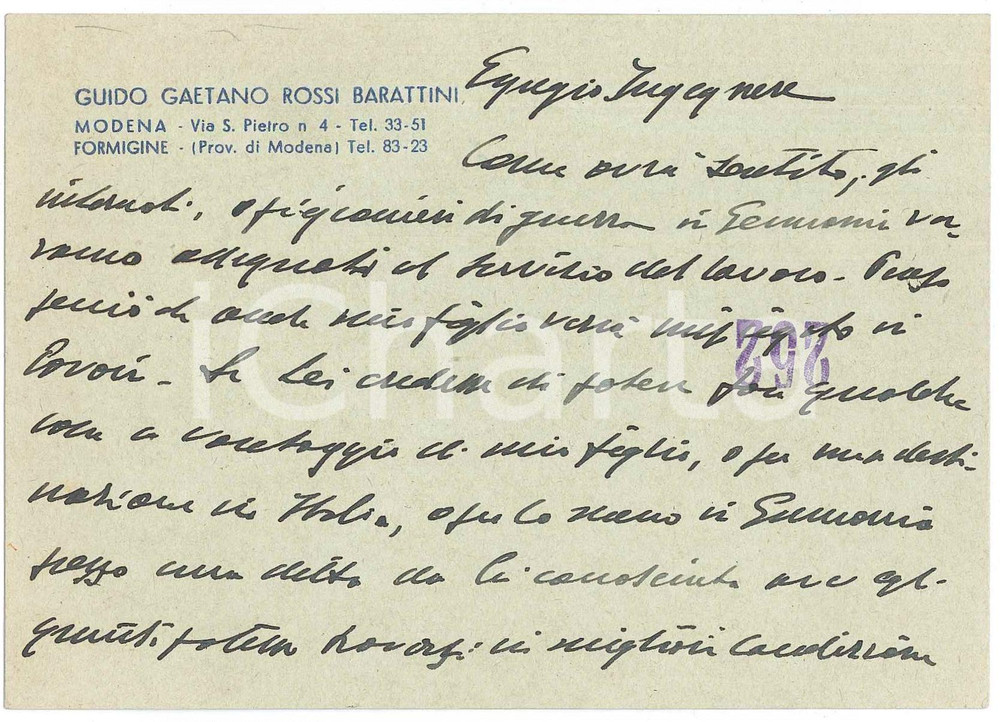 GUIDO GAETANO ROSSI BARATTINI
MODENA - Via S. Pietro n 4 - Tel. 33-51
FORMIGINE - (Prov. di Modena) Tel. 83-23
Egregio Ingegnere
Come avrà sentito, gli
internati, o prigionieri di guerra in Germania ver-
ranno assegnati al servizio del lavoro. Penso
perciò che anche mio figlio verrà impiegato in
lavori. Se Lei credesse di potere far qualche
cosa a vantaggio di mio figlio, o per una desti-
nazione in Italia, o per lo meno in Germania
presso una ditta da lei conosciuta ove egli
quindi potesse trovarsi in migliori condizioni
262
iCharta